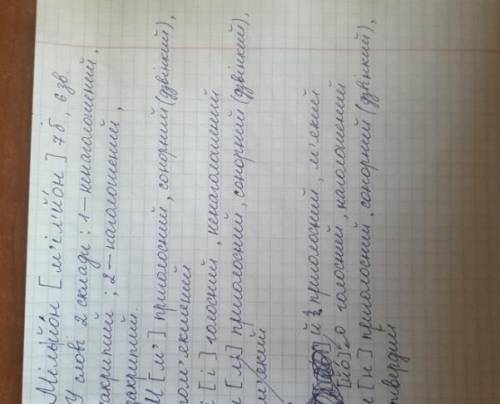 Мільйон [м’іл’йон] 7 б, 6 зв.
У слові 2 склади: 1 – ненаголошений,
закритий; 2 – наголошений,
закритий.
М [м’] приголосний, сонорний (дзвінкий),
пом’якшений
[і] голосний, ненаголошений
[л’] приголосний, сонорний (дзвінкий),
м’який
й приголосний, м’який
[йо] о голосний, наголошений
н [н] приголосний, сонорний (дзвінкий),
твердий